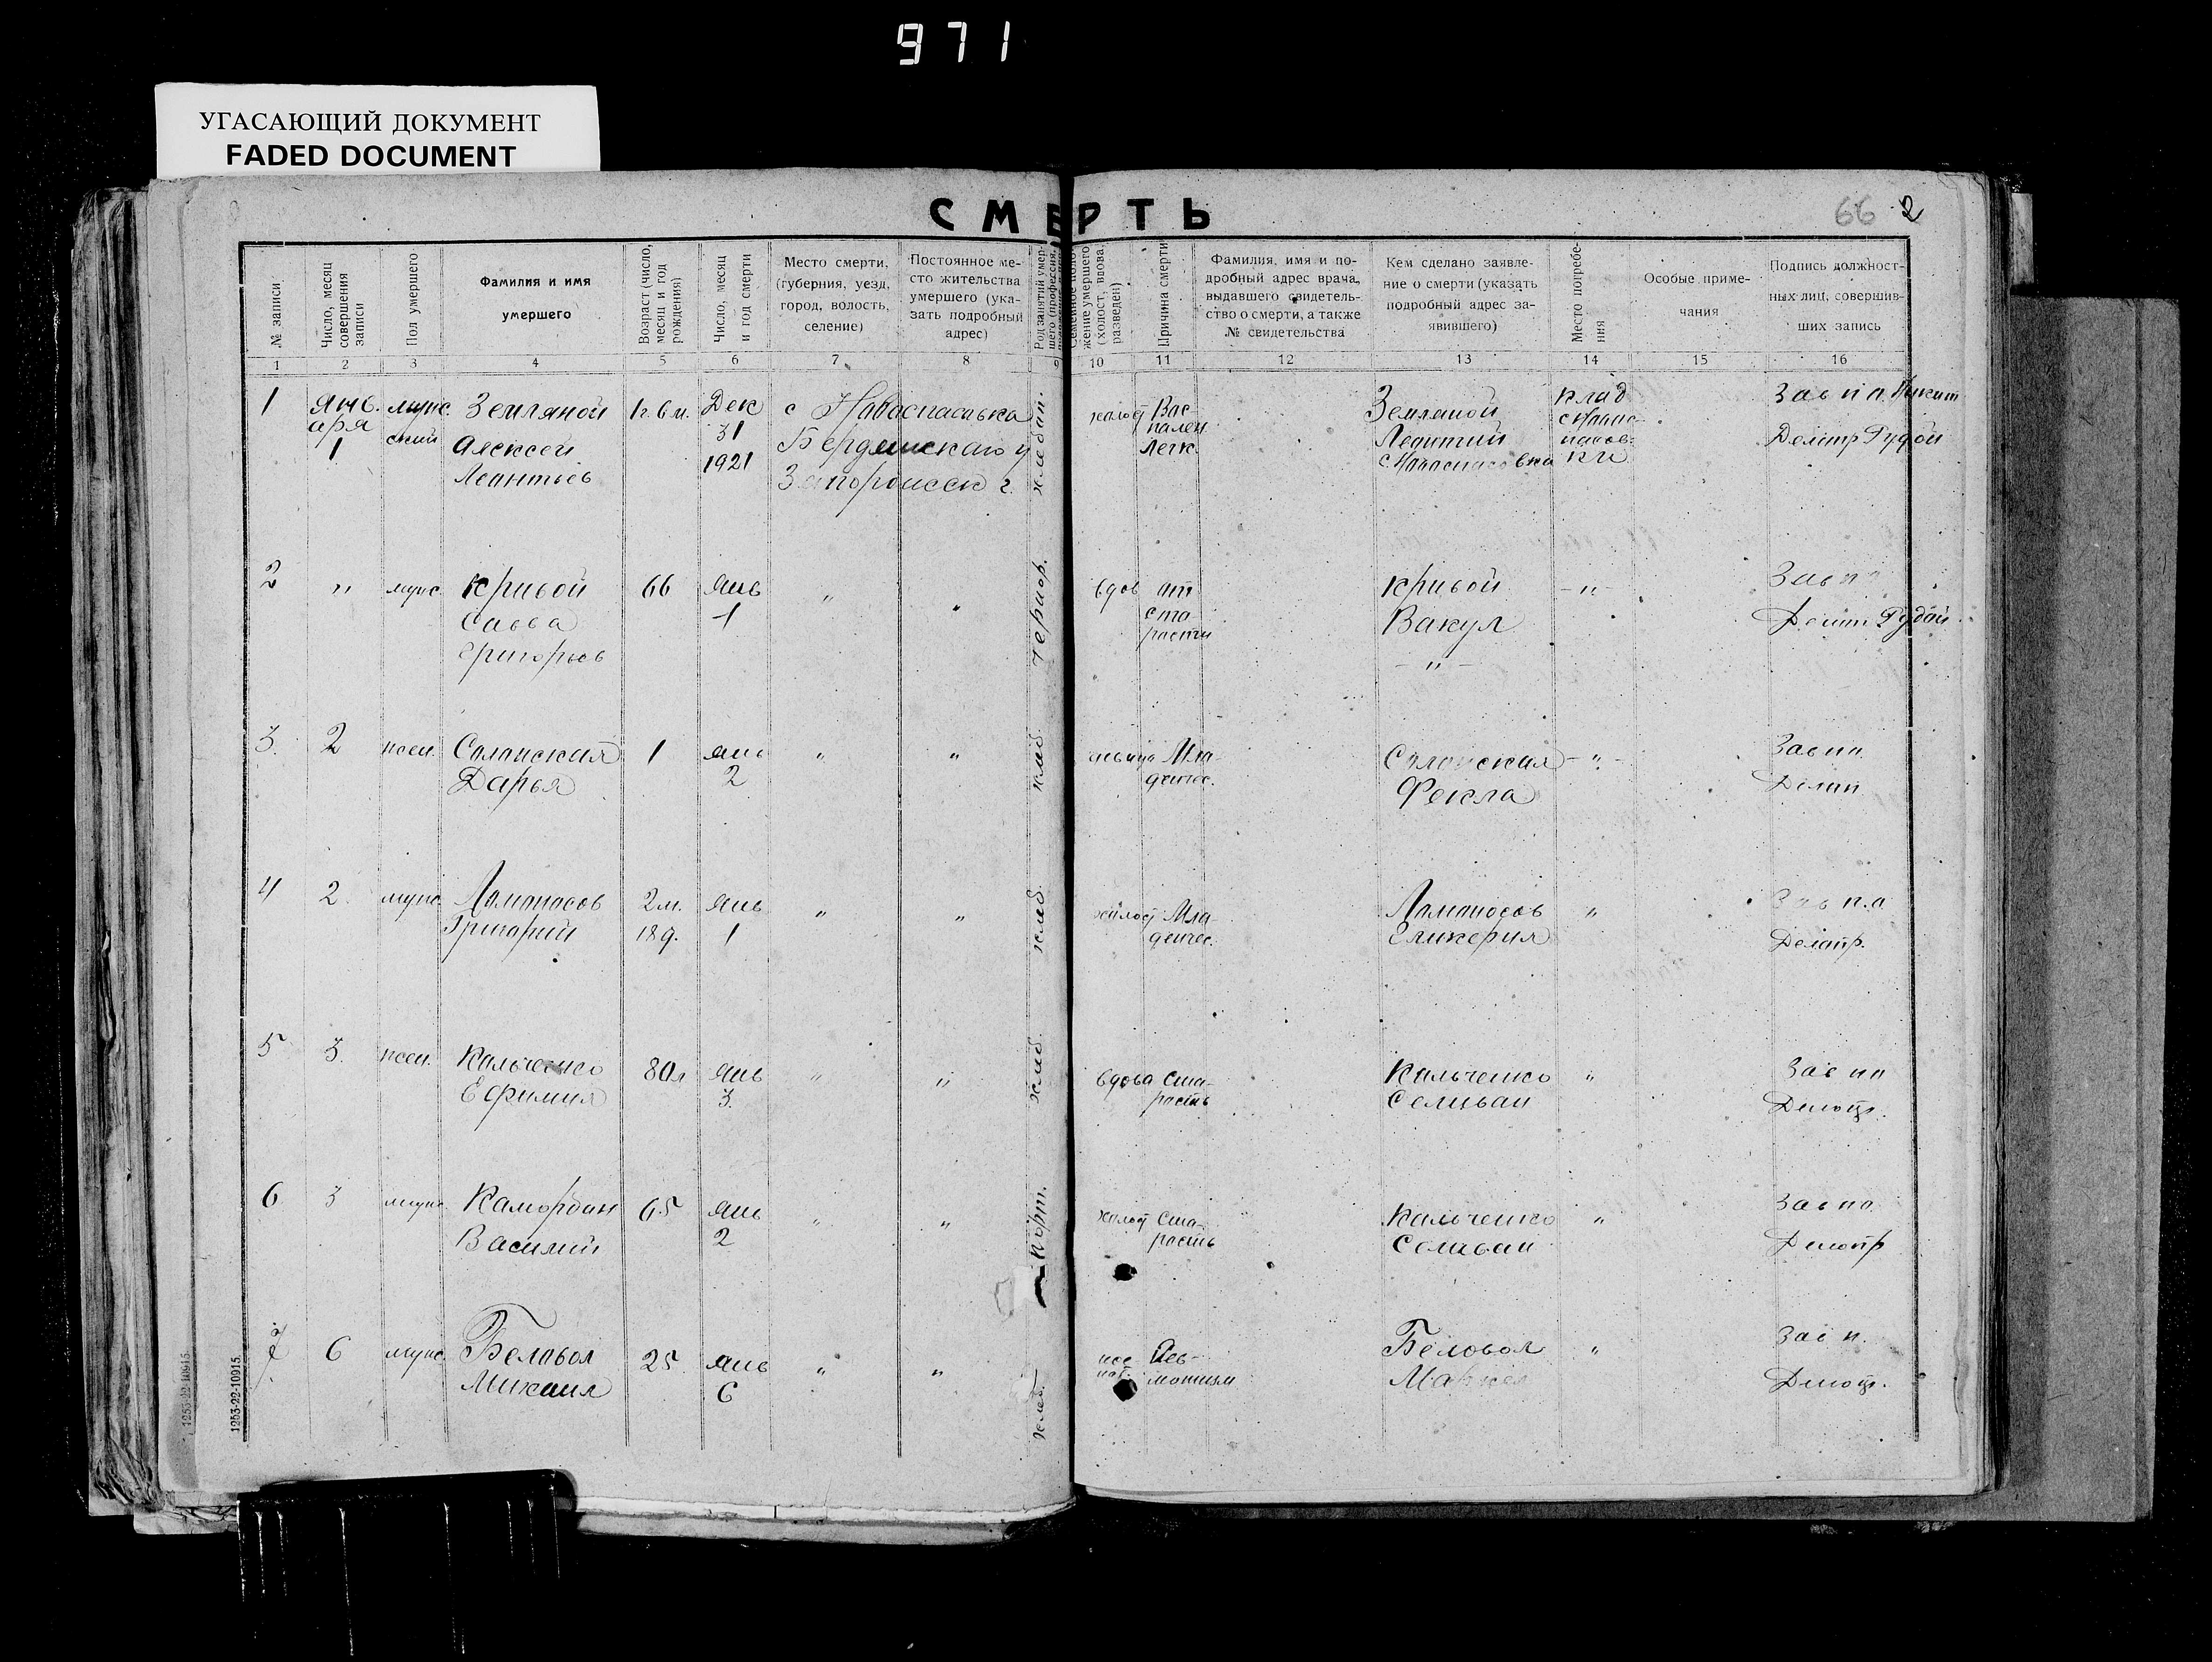 971
УГАСАЮЩИЙ ДОКУМЕНТ
FADED DOCUMENT
СМЕРТЬ
66 2
№ записи
Число, месяц совершения записи
Пол умершего
Фамилия и имя умершего
Возраст (число, месяц и год рождения)
Число, месяц и год смерти
Место смерти, (губерния, уезд, город, волость, селение)
Постоянное место жительства умершего (указать подробный адрес)
Род занятий умершего (профессия,
жение умершего (холост, вдова, разведен)
Причина смерти
Фамилия, имя и подробный адрес врача, выдавшего свидетельство о смерти, а также № свидетельства
Кем сделано заявление о смерти (указать подробный адрес заявившего)
Место погребения
Особые примечания
Подпись должностных лиц, совершивших запись
1 2 3 4 5 6 7 8 9 10 11 12 13 14 15 16
1 Янв. мужс. Земляной 1г. 6 м. Дек с Новоспасовка холост Вос- Земляной клад Зав п
аря ский Алексей 31 Бердянскаго у пален Леонтий
1 Леонтьев 1921 Запорожск г. Легк. с. Новоспасовка ки Рудой
2 " муж. Кривой 66 Янв " " вдов от Кривой -"- Зав п
Савва 1 ста- Вакул Рудой
Григорьев рости -"-
3. 2 жен. Солонская 1 Янв " " хлеб. девица Мла- Солонская -"- Зав п
Дарья 2 денчес. Фекла
4 2. муж. Ломоносов 2 м. Янв " " хлеб. холост Мла- Ломоносов " Зав п.
Григорий 18 д. 1 денчес. Гликерия Делопр.
5 3. жен. Кольченко 80 л Янв " " хлеб. вдова Ста- Кольченко " Зав
Ефимия 3. рость Селиван Делопр.
6 3 муж. Каморбан 65 Янв " " порт. холост Ста- Кольченко " Зав
Василий 2 рость Селиван Делопр
7. 6 муж. Беловол 25 Янв " " хлеб. Рев- Беловол " Зав п.
Михаил 6 матизм Маркел Делопр.
1253-22-10915
1253-22-10915